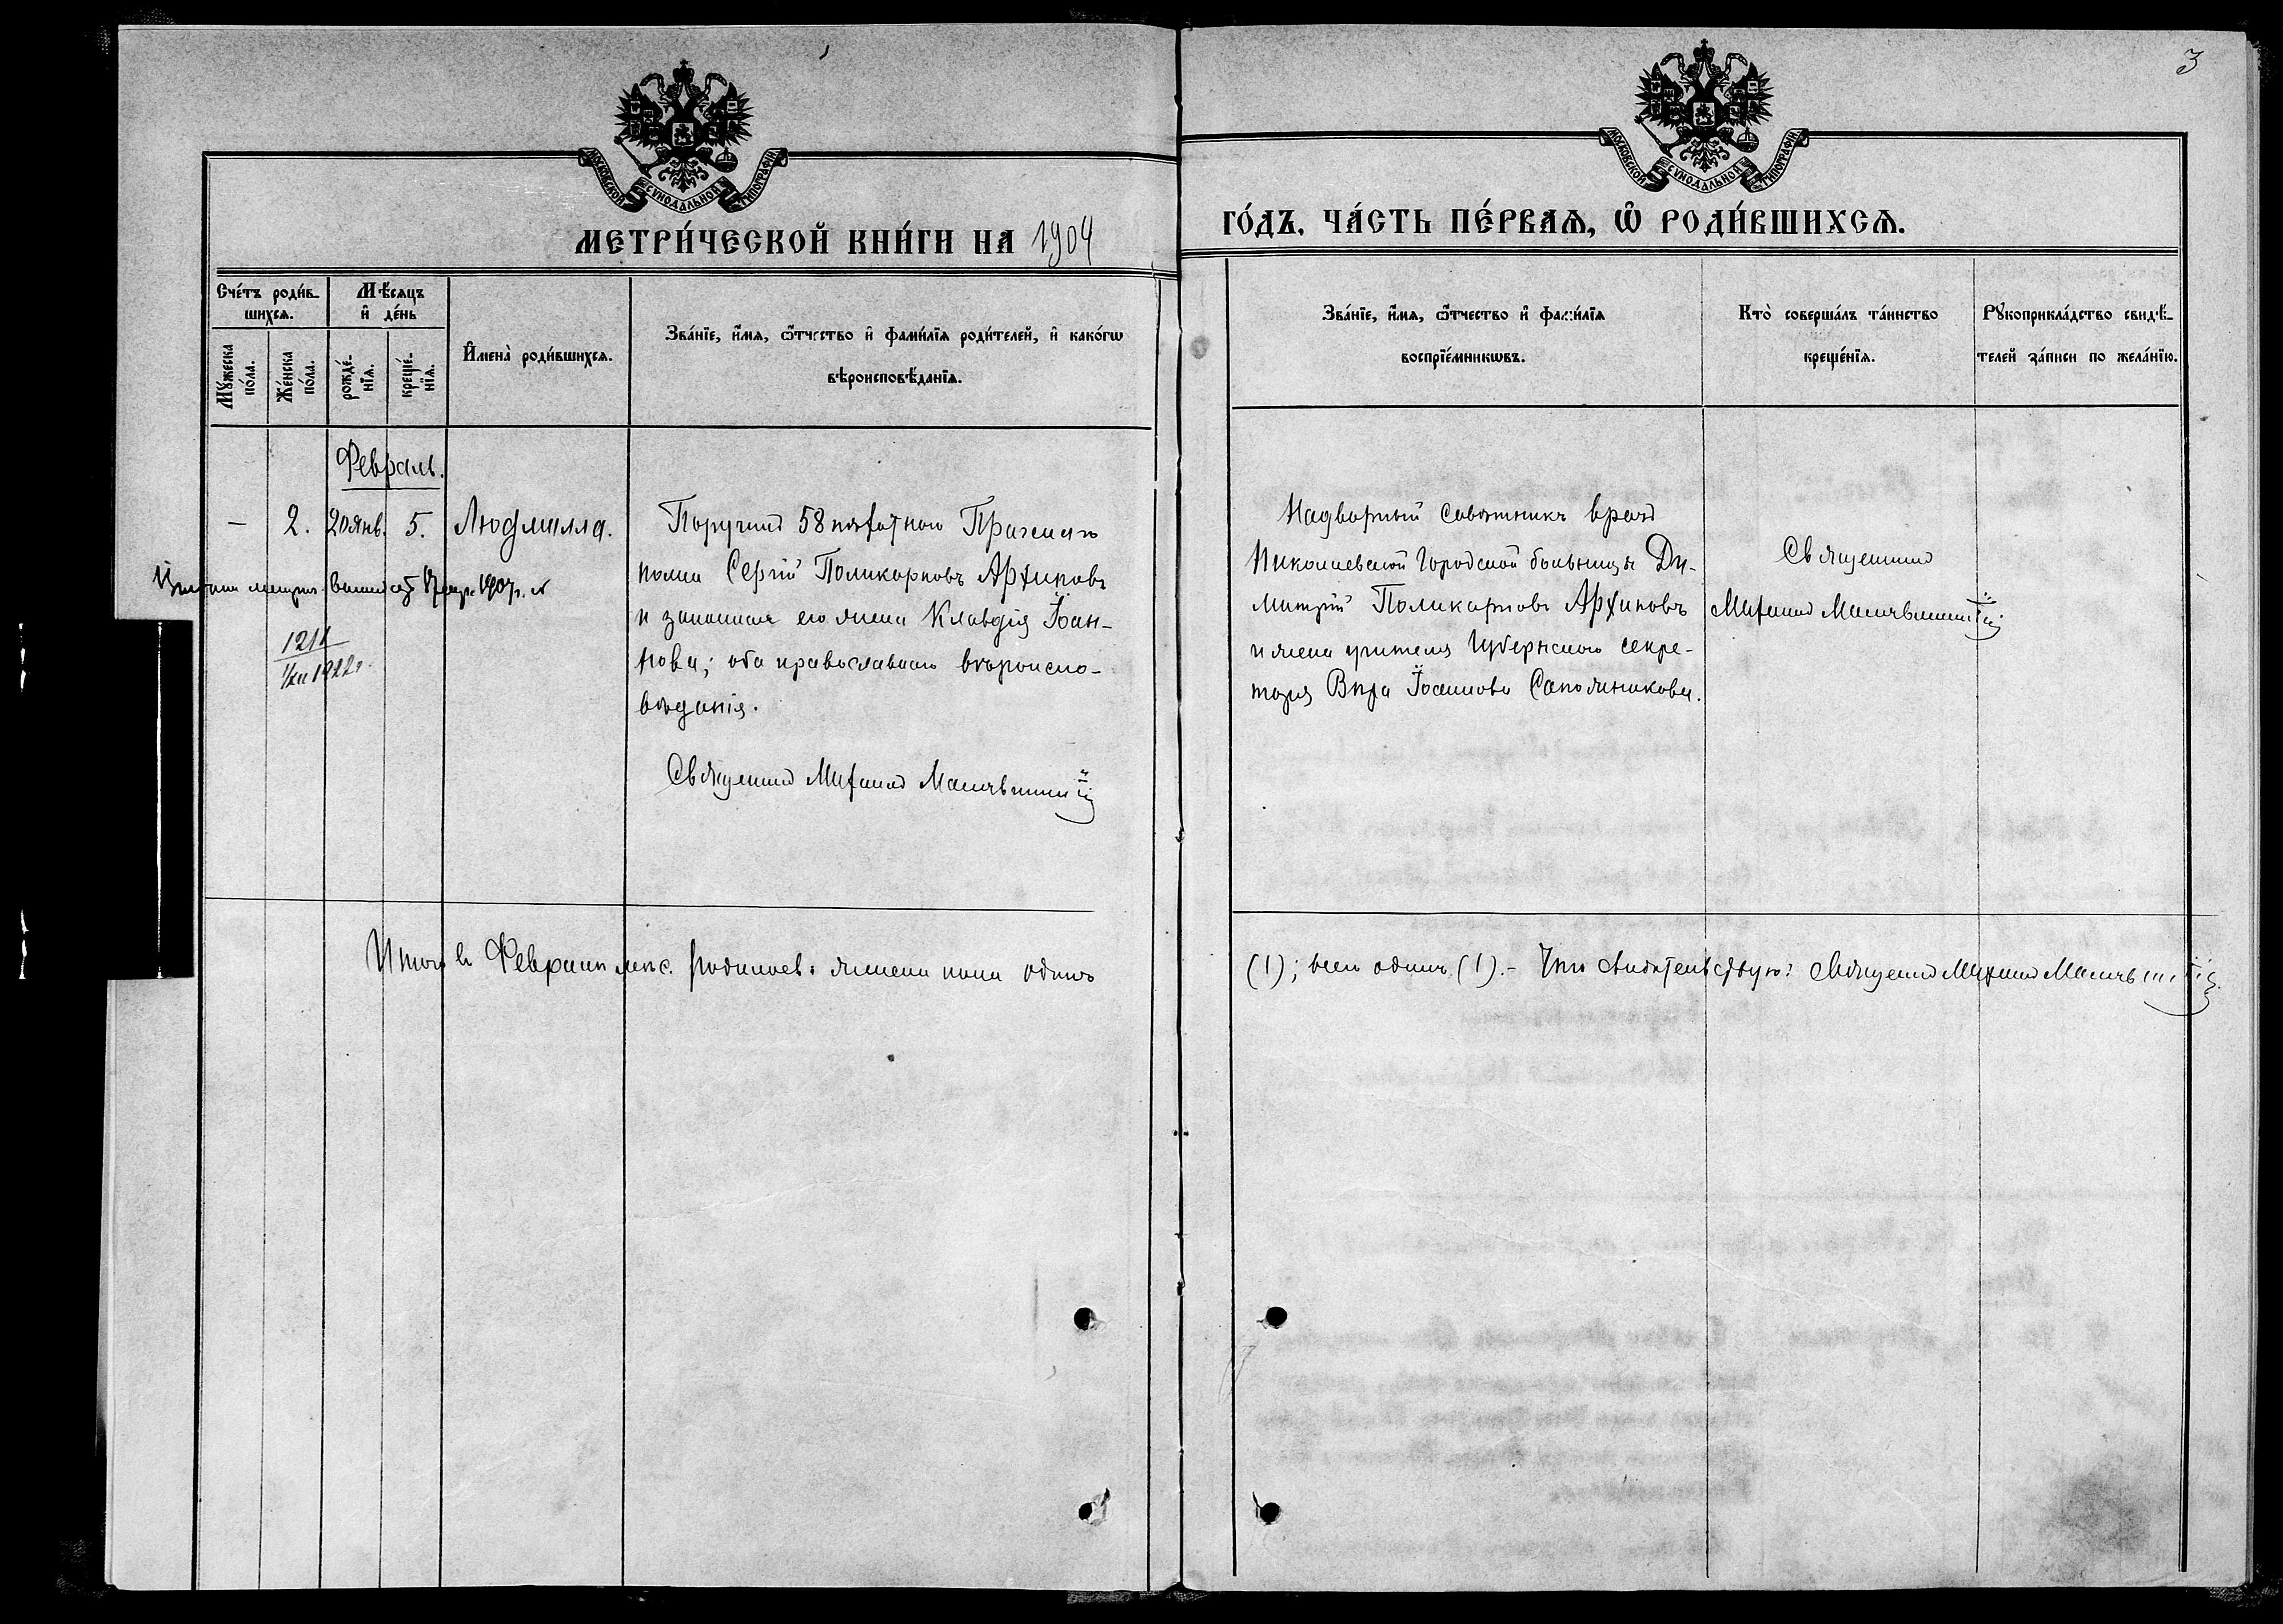 3
МОСКОВСКОЙ СѴНОДАЛЬНОЙ ТИПОГРАФІИ
МОСКОВСКОЙ СѴНОДАЛЬНОЙ ТИПОГРАФІИ
МЕТРИ́ЧЕСКОЙ КНИ́ГИ НА 1904
ГО́ДЪ, ЧА́СТЬ ПЕ́РВАѦ, Ѡ҆ РОДИ́ВШИХСѦ.
Сче́тъ роди́в-
шихсѧ.
Мꙋ́жеска
по́ла.
Же́нска
по́ла.
Мѣ́сѧцъ
и҆ де́нь
рожде́-
нїѧ.
креще́-
нїѧ.
И҆мена̀ роди́вшихсѧ.
Зва́нїе, и҆́мѧ, ѻ҆́тчество и҆ фами́лїѧ роди́телей, и҆ како́гѡ
вѣроисповѣ́данїѧ.
Зва́нїе, и҆́мѧ, ѻ҆́тчество и҆ фами́лїѧ
воспрїе́мникѡвъ.
Кто̀ соверша́лъ та́инство
креще́нїѧ.
Рꙋкоприкла́дство свидѣ́-
телей за́писи по жела́нїю.
Февраль.
— 2. 20 янв. 5. Людмилла.
Поручикъ 58 пѣхотнаго Пражскаго
полка Сергій Поликарповъ Архиповъ
и законная его жена Клавдія Іоан-
нова; оба православнаго вѣроиспо-
вѣданія.
Священникъ Михаилъ
1211
1922 г.
1907 г.
Надворный Совѣтникъ врачъ
Николаевской Городской больницы Ди-
митрій Поликарповъ Архиповъ
и жена учителя Губернскаго секре-
таря Вѣра Іоаннова Сапожникова.
Священникъ
Михаилъ
Итого въ Февралѣ мѣс. родилось: женска пола одинъ
(1); всего одинъ (1).- Что свидѣтельствую: Священникъ Михаилъ